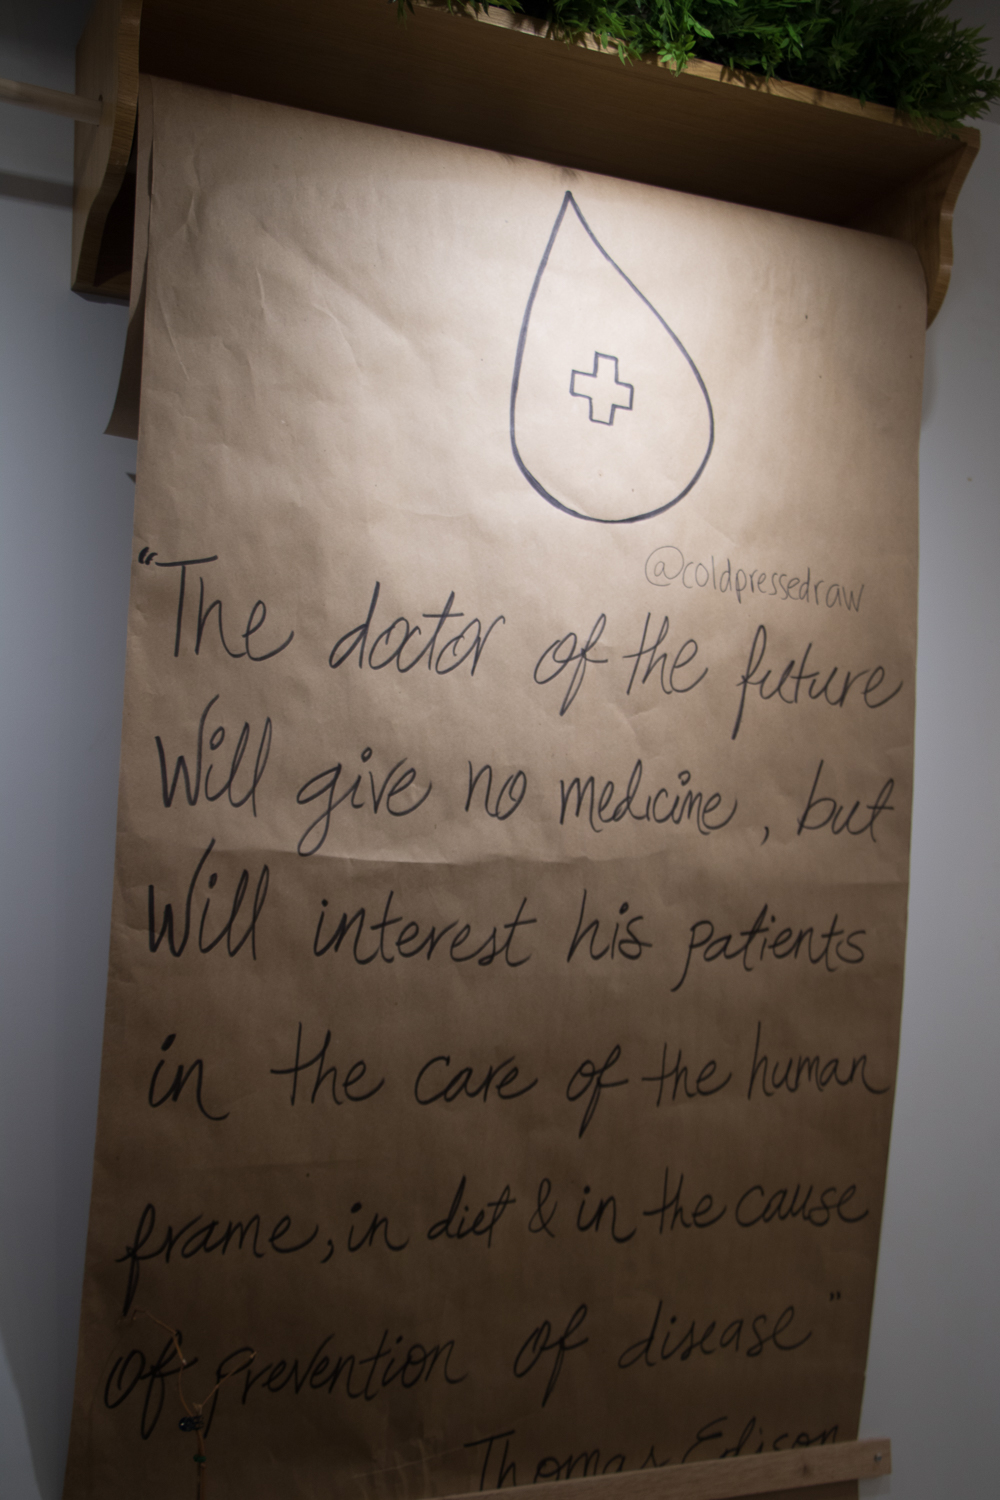 @coldpressedraw
"The doctor of the future
Will give no medicine, but
Will interest his patients
in the care of the human
frame, in diet & in the cause
of prevention of disease"
Thomas Edison